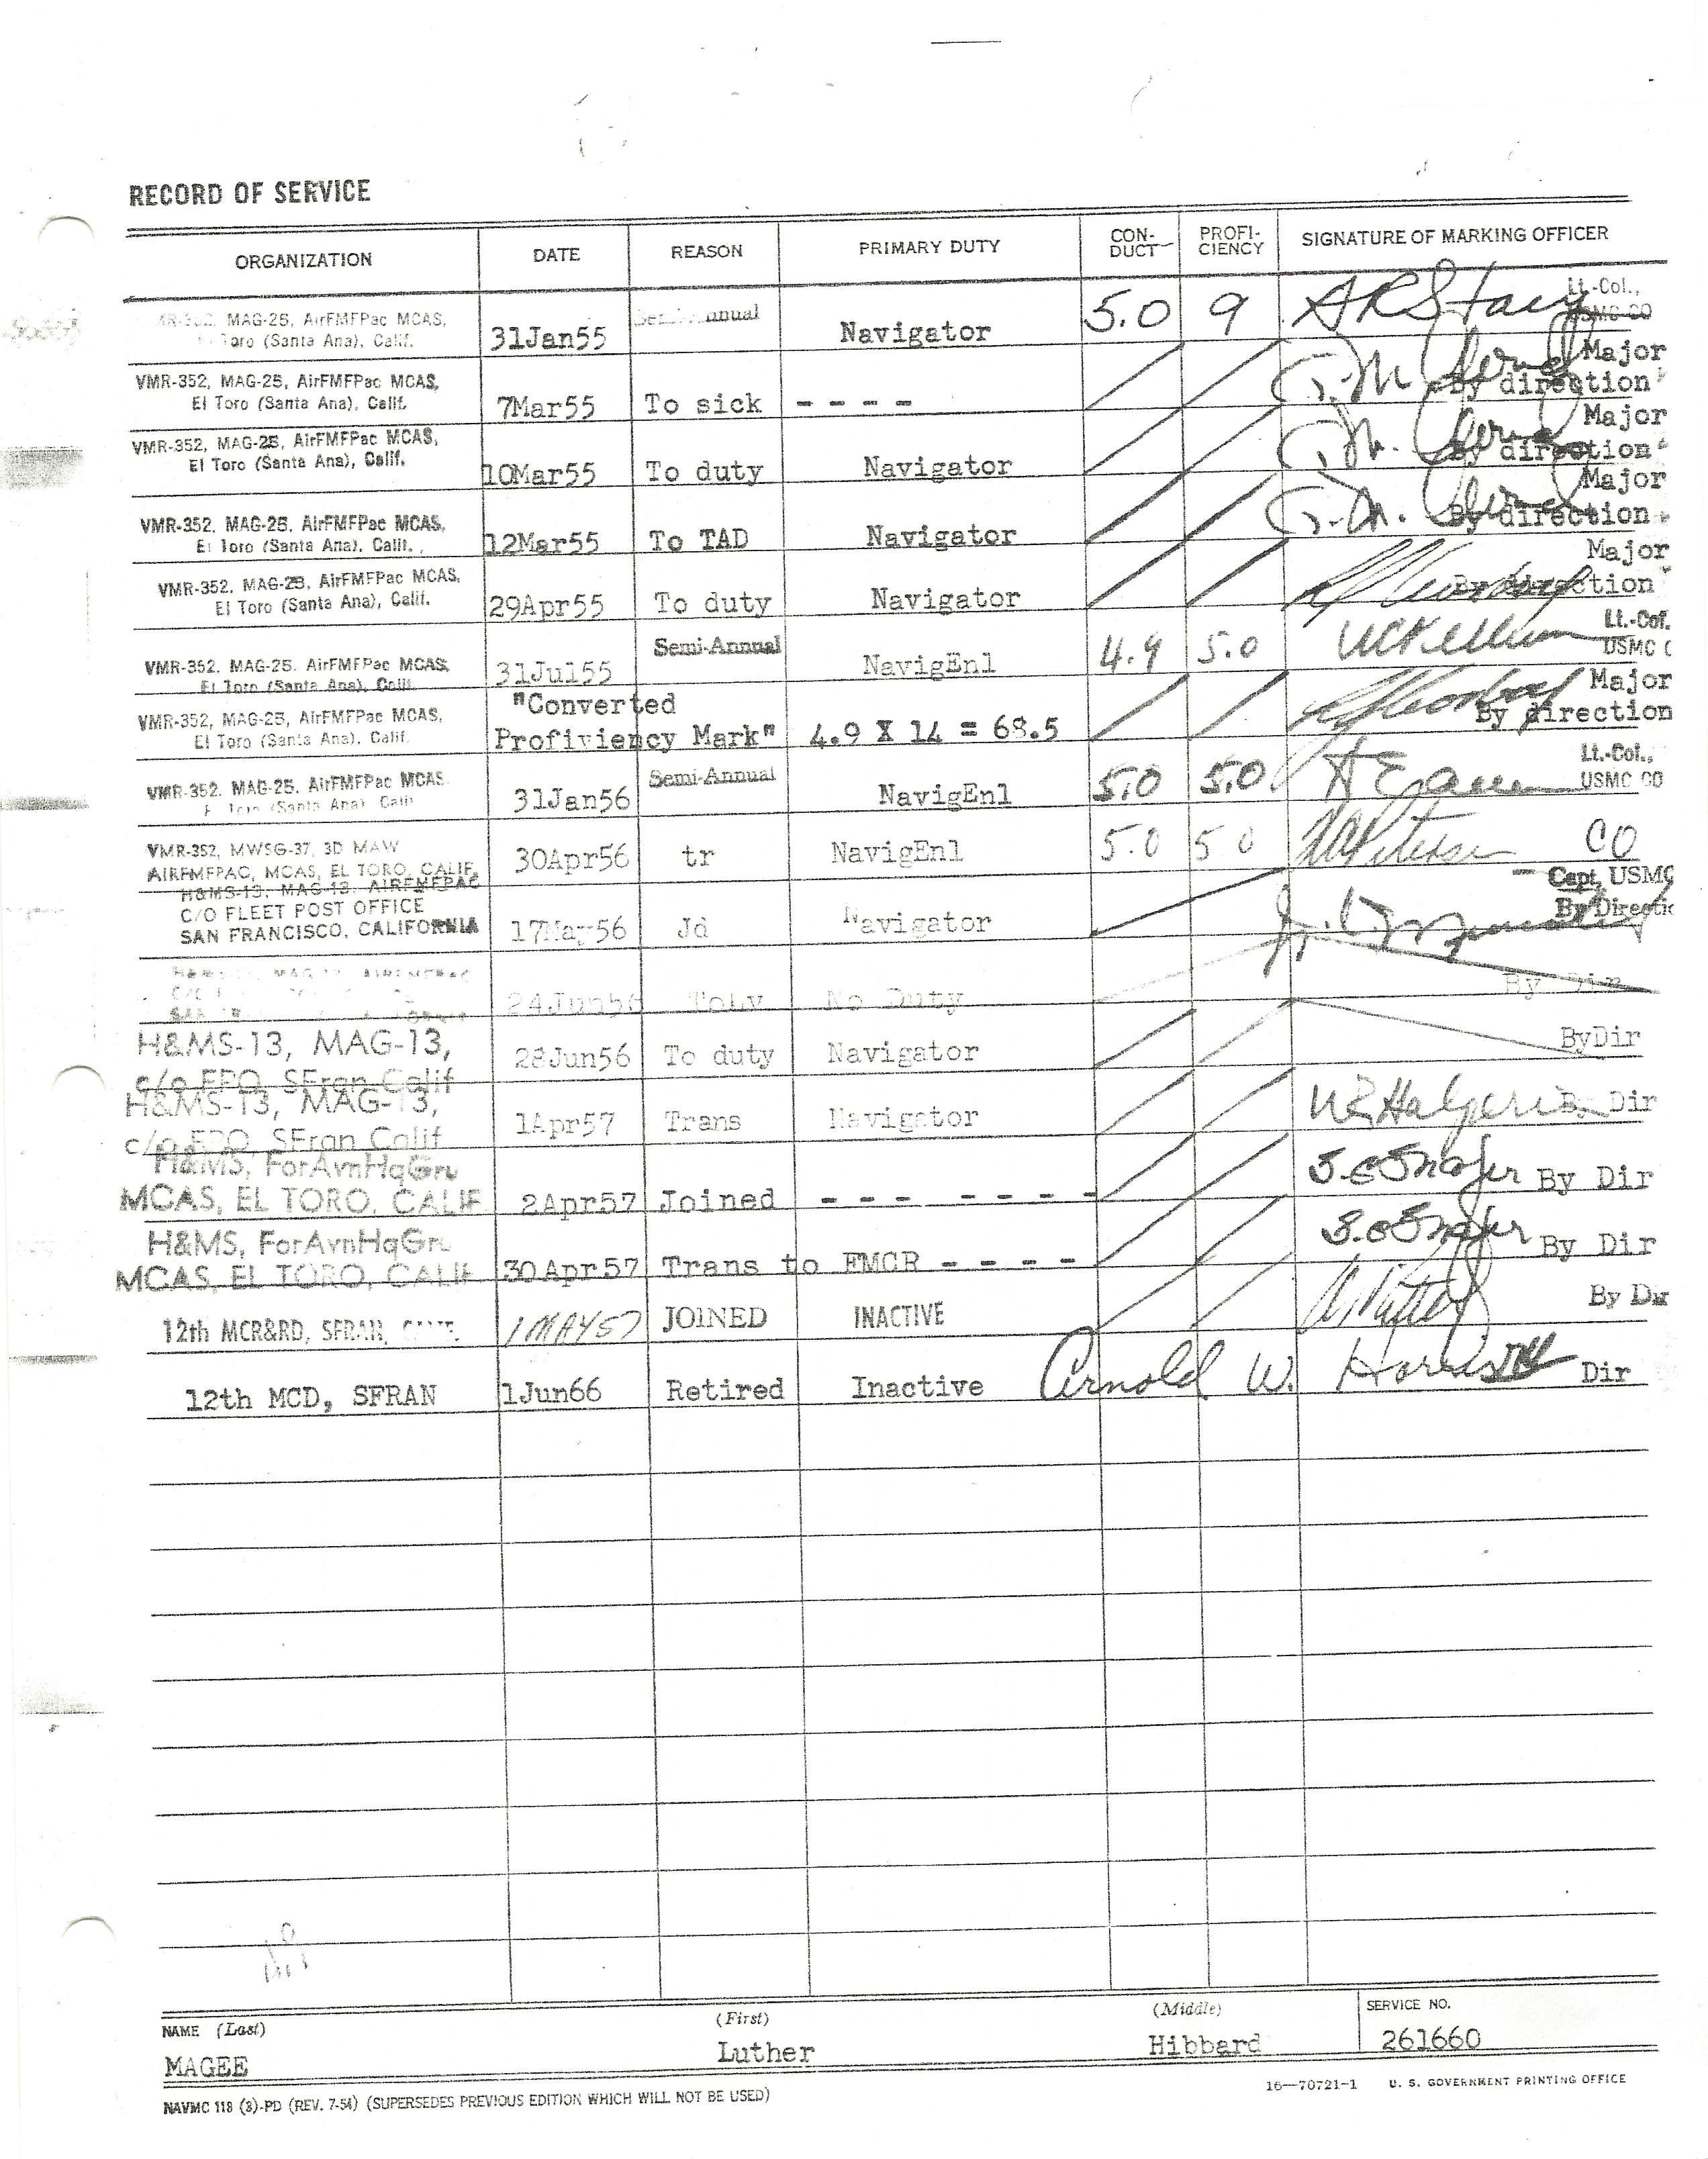 RECORD OF SERVICE
ORGANIZATION DATE REASON PRIMARY DUTY CON-DUCT PROFI-CIENCY SIGNATURE OF MARKING OFFICER
Lt.-Col.,
MAG-25, AirFMFPac MCAS, Semi-Annual 5.0 9 USMC CO
(Santa Ana), Calif. 31Jan55 Navigator
Major
VMR-352, MAG-25, AirFMFPac MCAS, By direction
El Toro (Santa Ana), Calif. 7Mar55 To sick - - - -
Major
VMR-352, MAG-25, AirFMFPac MCAS, By direction
El Toro (Santa Ana), Calif. 10Mar55 To duty Navigator
Major
VMR-352, MAG-25, AirFMFPac MCAS, By direction
El Toro (Santa Ana), Calif. 12Mar55 To TAD Navigator
Major
VMR-352, MAG-25, AirFMFPac MCAS, By direction
El Toro (Santa Ana), Calif. 29Apr55 To duty Navigator
Lt.-Col.
Semi-Annual 4.9 5.0 USMC C
VMR-352, MAG-25, AirFMFPac MCAS, 31Jul55 NavigEnl
El Toro (Santa Ana), Calif.
"Converted Major
VMR-352, MAG-25, AirFMFPac MCAS, By direction
El Toro (Santa Ana), Calif. Profiviency Mark" 4.9 X 14 = 68.5
Lt.-Col.,
VMR-352, MAG-25, AirFMFPac MCAS Semi-Annual 5.0 5.0 USMC CO
El Toro (Santa Ana) Calif 31Jan56 NavigEnl
VMR-352, MWSG-37, 3D MAW 30Apr56 tr NavigEnl 5.0 5.0 CO
AIRFMFPAC, MCAS, EL TORO, CALIF.
H&MS-13, MAG-13, AIRFMFPAC Capt, USMC
C/O FLEET POST OFFICE By Directio
SAN FRANCISCO, CALIFORNIA 17May56 Jd Navigator
24Jun56 No Duty By Dir
H&MS-13, MAG-13, 28Jun56 To duty Navigator ByDir
c/o FPO, SFran Calif
H&MS-13, MAG-13, 1Apr57 Trans Navigator By Dir
c/o FPO, SFran Calif
H&MS, ForAvnHqGru
MCAS, EL TORO, CALIF 2Apr57 Joined - - - - - - - By Dir
H&MS, ForAvnHqGru
MCAS, EL TORO, CALIF 30Apr57 Trans to FMCR - - - - By Dir
12th MCR&RD, SFRAN, 1MAY57 JOINED INACTIVE By Dir
12th MCD, SFRAN 1Jun66 Retired Inactive Arnold W. Harris Dir
NAME (Last) (First) (Middle) SERVICE NO.
MAGEE Luther Hibbard 261660
NAVMC 118 (3)-PD (REV. 7-54) (SUPERSEDES PREVIOUS EDITION WHICH WILL NOT BE USED) 16—70721-1 U. S. GOVERNMENT PRINTING OFFICE